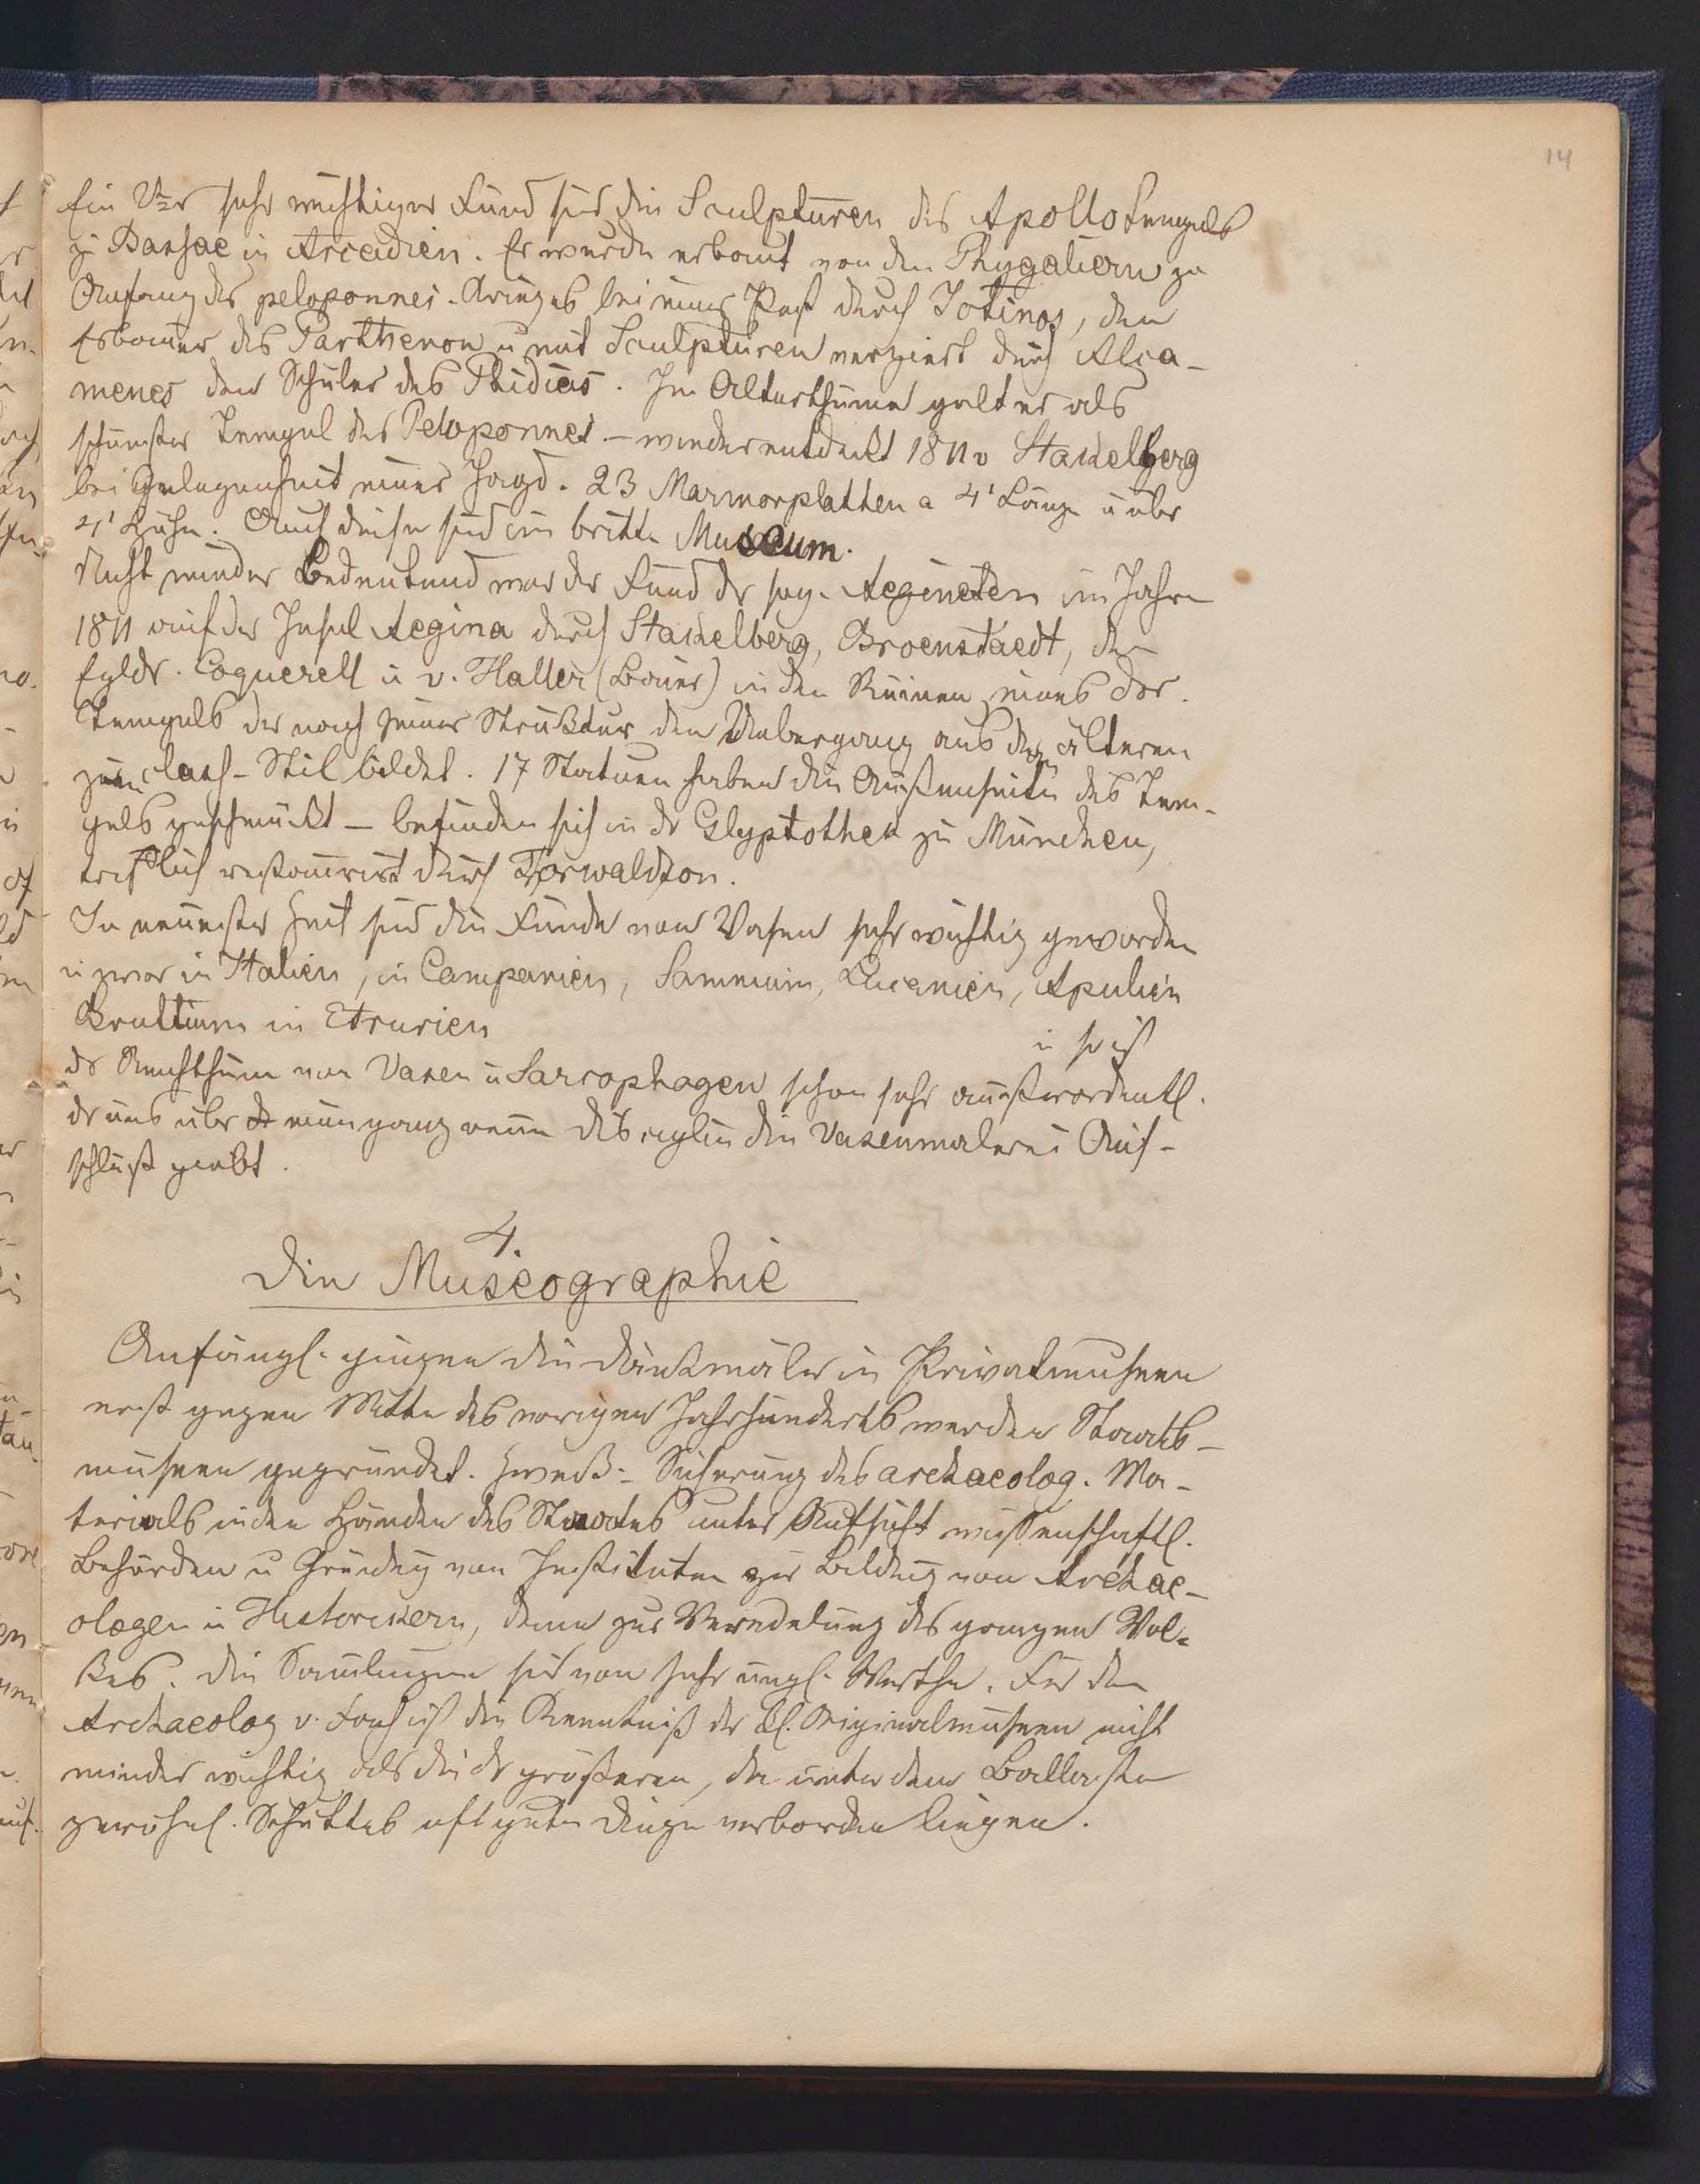 14
Ein 2ter sehr wichtiger Fund sind die Sculpturen des Apollotempels
zu Bassae in Arcadien. Er wurde erbaut von den Phygaliern zu
Anfang des peloponnes. Krieges bei einer Pest durch Iotinos, den
Erbauer des Parthenon u mit Sculpturen verziert durch Alca-
menes den Schüler des Phidias. Im Alterthume galt er als
schönster Tempel des Peloponnes – wiederentdeckt 1811 v Stakelberg
bei Gelegenheit einer Jagd. 23 Marmorplatten a 4' Länge u über
4' Höhe. Auch diese sind im britt. Museum.
Nicht minder bedeutend war der Fund der sog. Aegineten im Jahre
1811 auf der Insel Aegina durch Stakelberg, Broenstaedt, den
Egldr. Coquerell u v. Haller (Baier) in den Ruinen eines dor.
Tempels der nach seiner Struktur den Uebergang aus dem älteren
zum class. Stil bildet. 17 Statuen haben die Außenseiten des Tem-
pels geschmückt – befinden sich in der Glyptothek zu München,
trefflich restaurirt durch Torwaldson.
In neuester Zeit sind die Funde von Vasen sehr wichtig geworden
u zwar in Italien, in Campanien, Samnium, Lucanien, Apulien
Bruttium in Etrurien
u so ist
der Reichthum von Vasen u Sarcophagen schon sehr außerordentl.
der uns über eine ganz neue Disciplin die Vasenmalerei Auf-
schluß giebt.
4.
Die Museographie
Anfängl. gingen die Denkmäler in Privatmuseen
erst gegen Mitte des vorigen Jahrhunderts werden Staats-
museen gegründet. Zweck: Sicherung des archaeolog. Ma-
terials in den Händen des Staates unter Aufsicht wissenschaftl.
Behörden u Gründg von Instituten zur Bildung von Archae-
ologen u Historikern, denn zur Veredelung des ganzen Vol-
kes. Die Samlungen sind von sehr ungl. Werthe. Für den
Archaeolog v. Fach ist die Kenntniß der kl. Originalmuseen nicht
minder wichtig als die der größeren, da unter dem Ballaste
gewöhnl. Schuttes oft gute Dinge verborgen liegen.